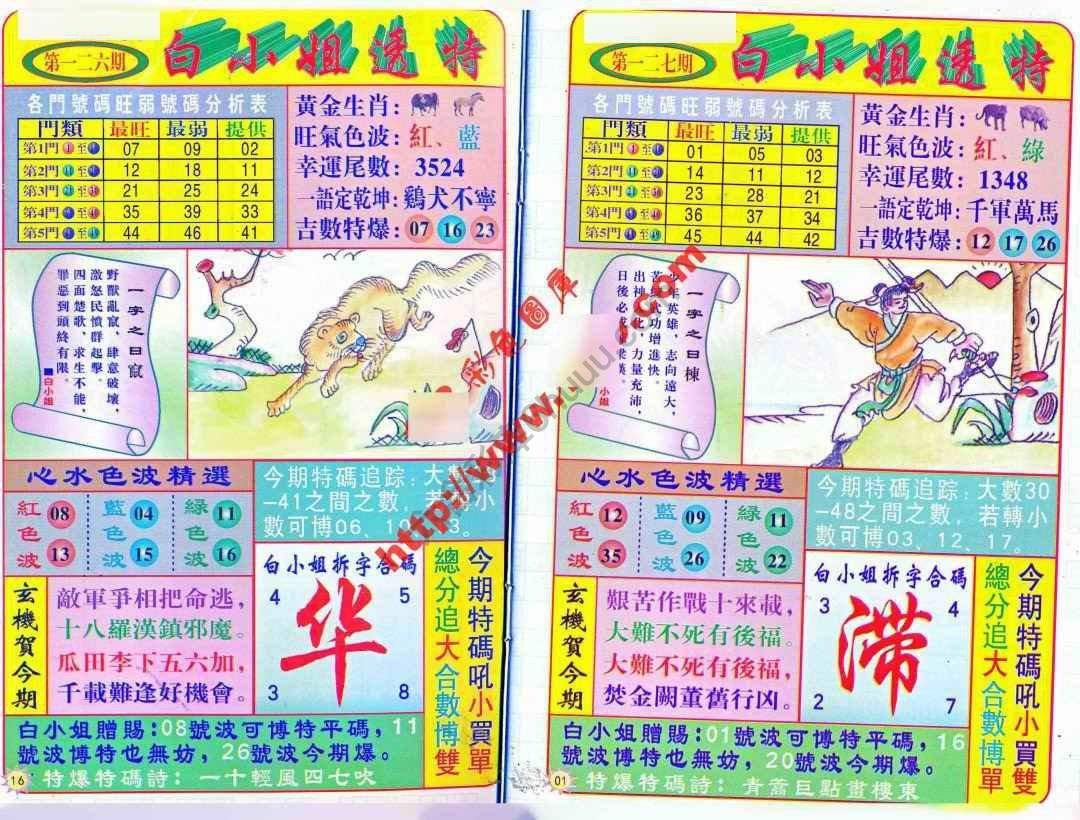 第一二六期
白小姐透特
各門號碼旺弱號碼分析表
門類 最旺 最弱 提供
第1門 至 07 09 02
第2門 至 12 18 11
第3門 至 21 25 24
第4門 至 35 39 33
第5門 至 44 46 41
黃金生肖:
旺氣色波: 紅、藍
幸運尾數: 3524
一語定乾坤: 鷄犬不寧
吉數特爆: 07 16 23
一字之曰竄
野獸亂竄,肆意破壞,
激怒民憤群起擊。
四面楚歌,求生不能,
罪惡到頭終有限。
■白小姐
心水色波精選
紅色波 08 13
藍色波 04 15
綠色波 11 16
今期特碼追踪:大數
-41之間之數,若轉小
數可博06、10、
白小姐拆字合碼
4 5
华
3 8
今期特碼吼小買單
總分追大合數博雙
玄機賀今期
敵軍爭相把命逃,
十八羅漢鎮邪魔。
瓜田李下五六加,
千載難逢好機會。
白小姐贈賜:08號波可博特平碼,11
號波博特也無妨,26號波今期爆。
16
特爆特碼詩:一十輕風四七吹
第一二七期
白小姐透特
各門號碼旺弱號碼分析表
門類 最旺 最弱 提供
第1門 至 01 05 03
第2門 至 14 11 12
第3門 至 23 28 21
第4門 至 36 37 34
第5門 至 45 44 42
黃金生肖:
旺氣色波: 紅、綠
幸運尾數: 1348
一語定乾坤: 千軍萬馬
吉數特爆: 12 17 26
一字之曰棟
少年英雄,志向遠大,
苦練武功增進快。
出神入化,力量充沛,
日後必成棟樑漢。
小姐
心水色波精選
紅色波 12 35
藍色波 09 26
綠色波 11 22
今期特碼追踪:大數30
-48之間之數,若轉小
數可博03、12、17。
白小姐拆字合碼
3 4
滞
2 7
今期特碼吼小買雙
總分追大合數博單
玄機賀今期
艱苦作戰十來載,
大難不死有後福。
大難不死有後福,
焚金闕董舊行凶。
白小姐贈賜:01號波可博特平碼,16
號波博特也無妨,20號波今期爆。
01
特爆特碼詩:青蓊巨點畫樓東
彩色圖庫